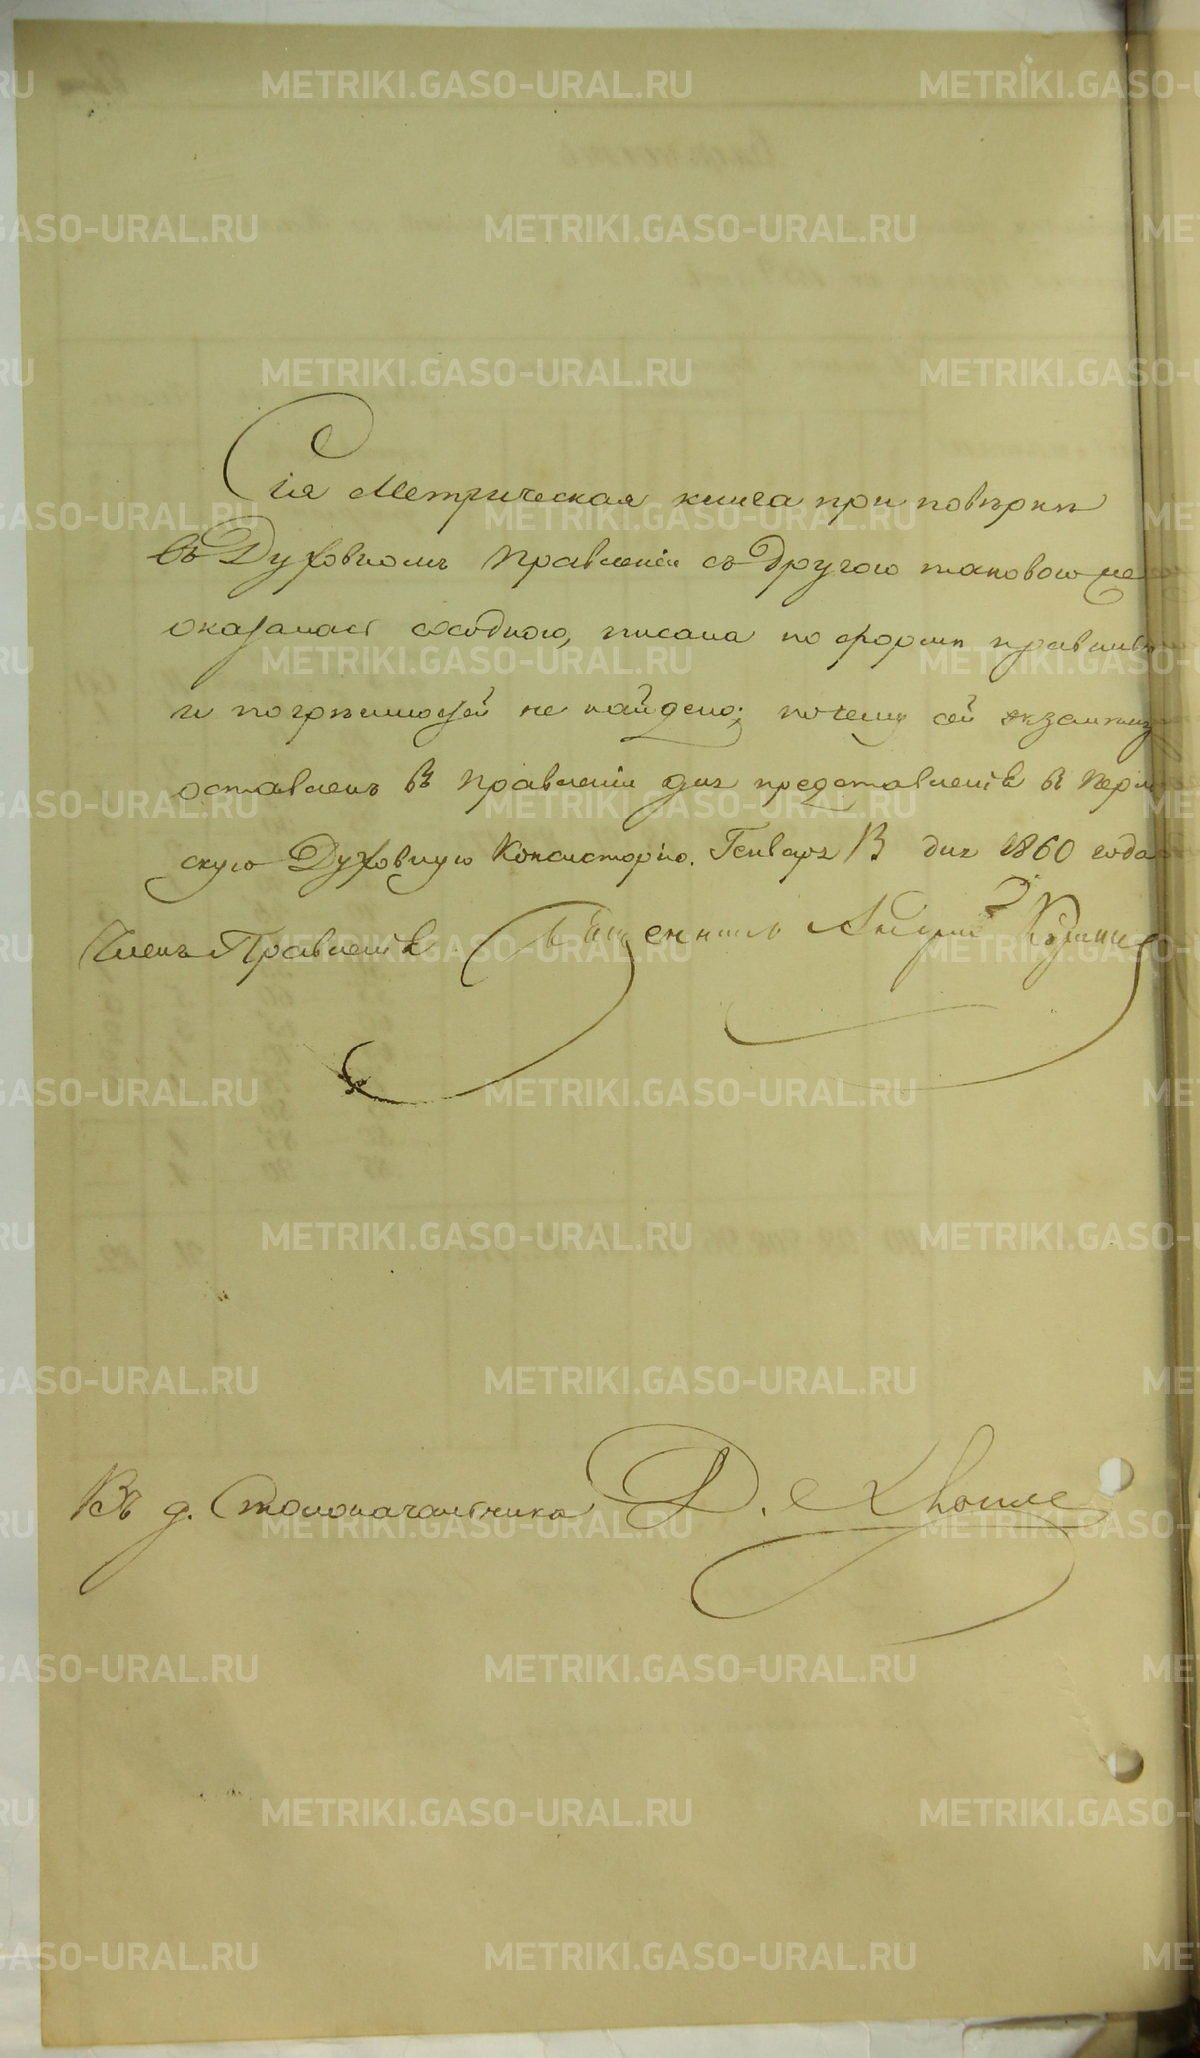 Сія Метрическая книга при повѣркѣ
въ Духовномъ Правленіи съ другою таковою же
оказалась сходною, писана по формѣ правильно
и погрѣшностей не найдено; почему сей экземпляръ
оставленъ въ Правленіи для представленія въ Перм
скую Духовную Консисторію. Генваря 13 дня 1860 года
Членъ Правленія Священникъ Андрей
Въ д. Столоначальника Д.
METRIKI.GASO-URAL.RU